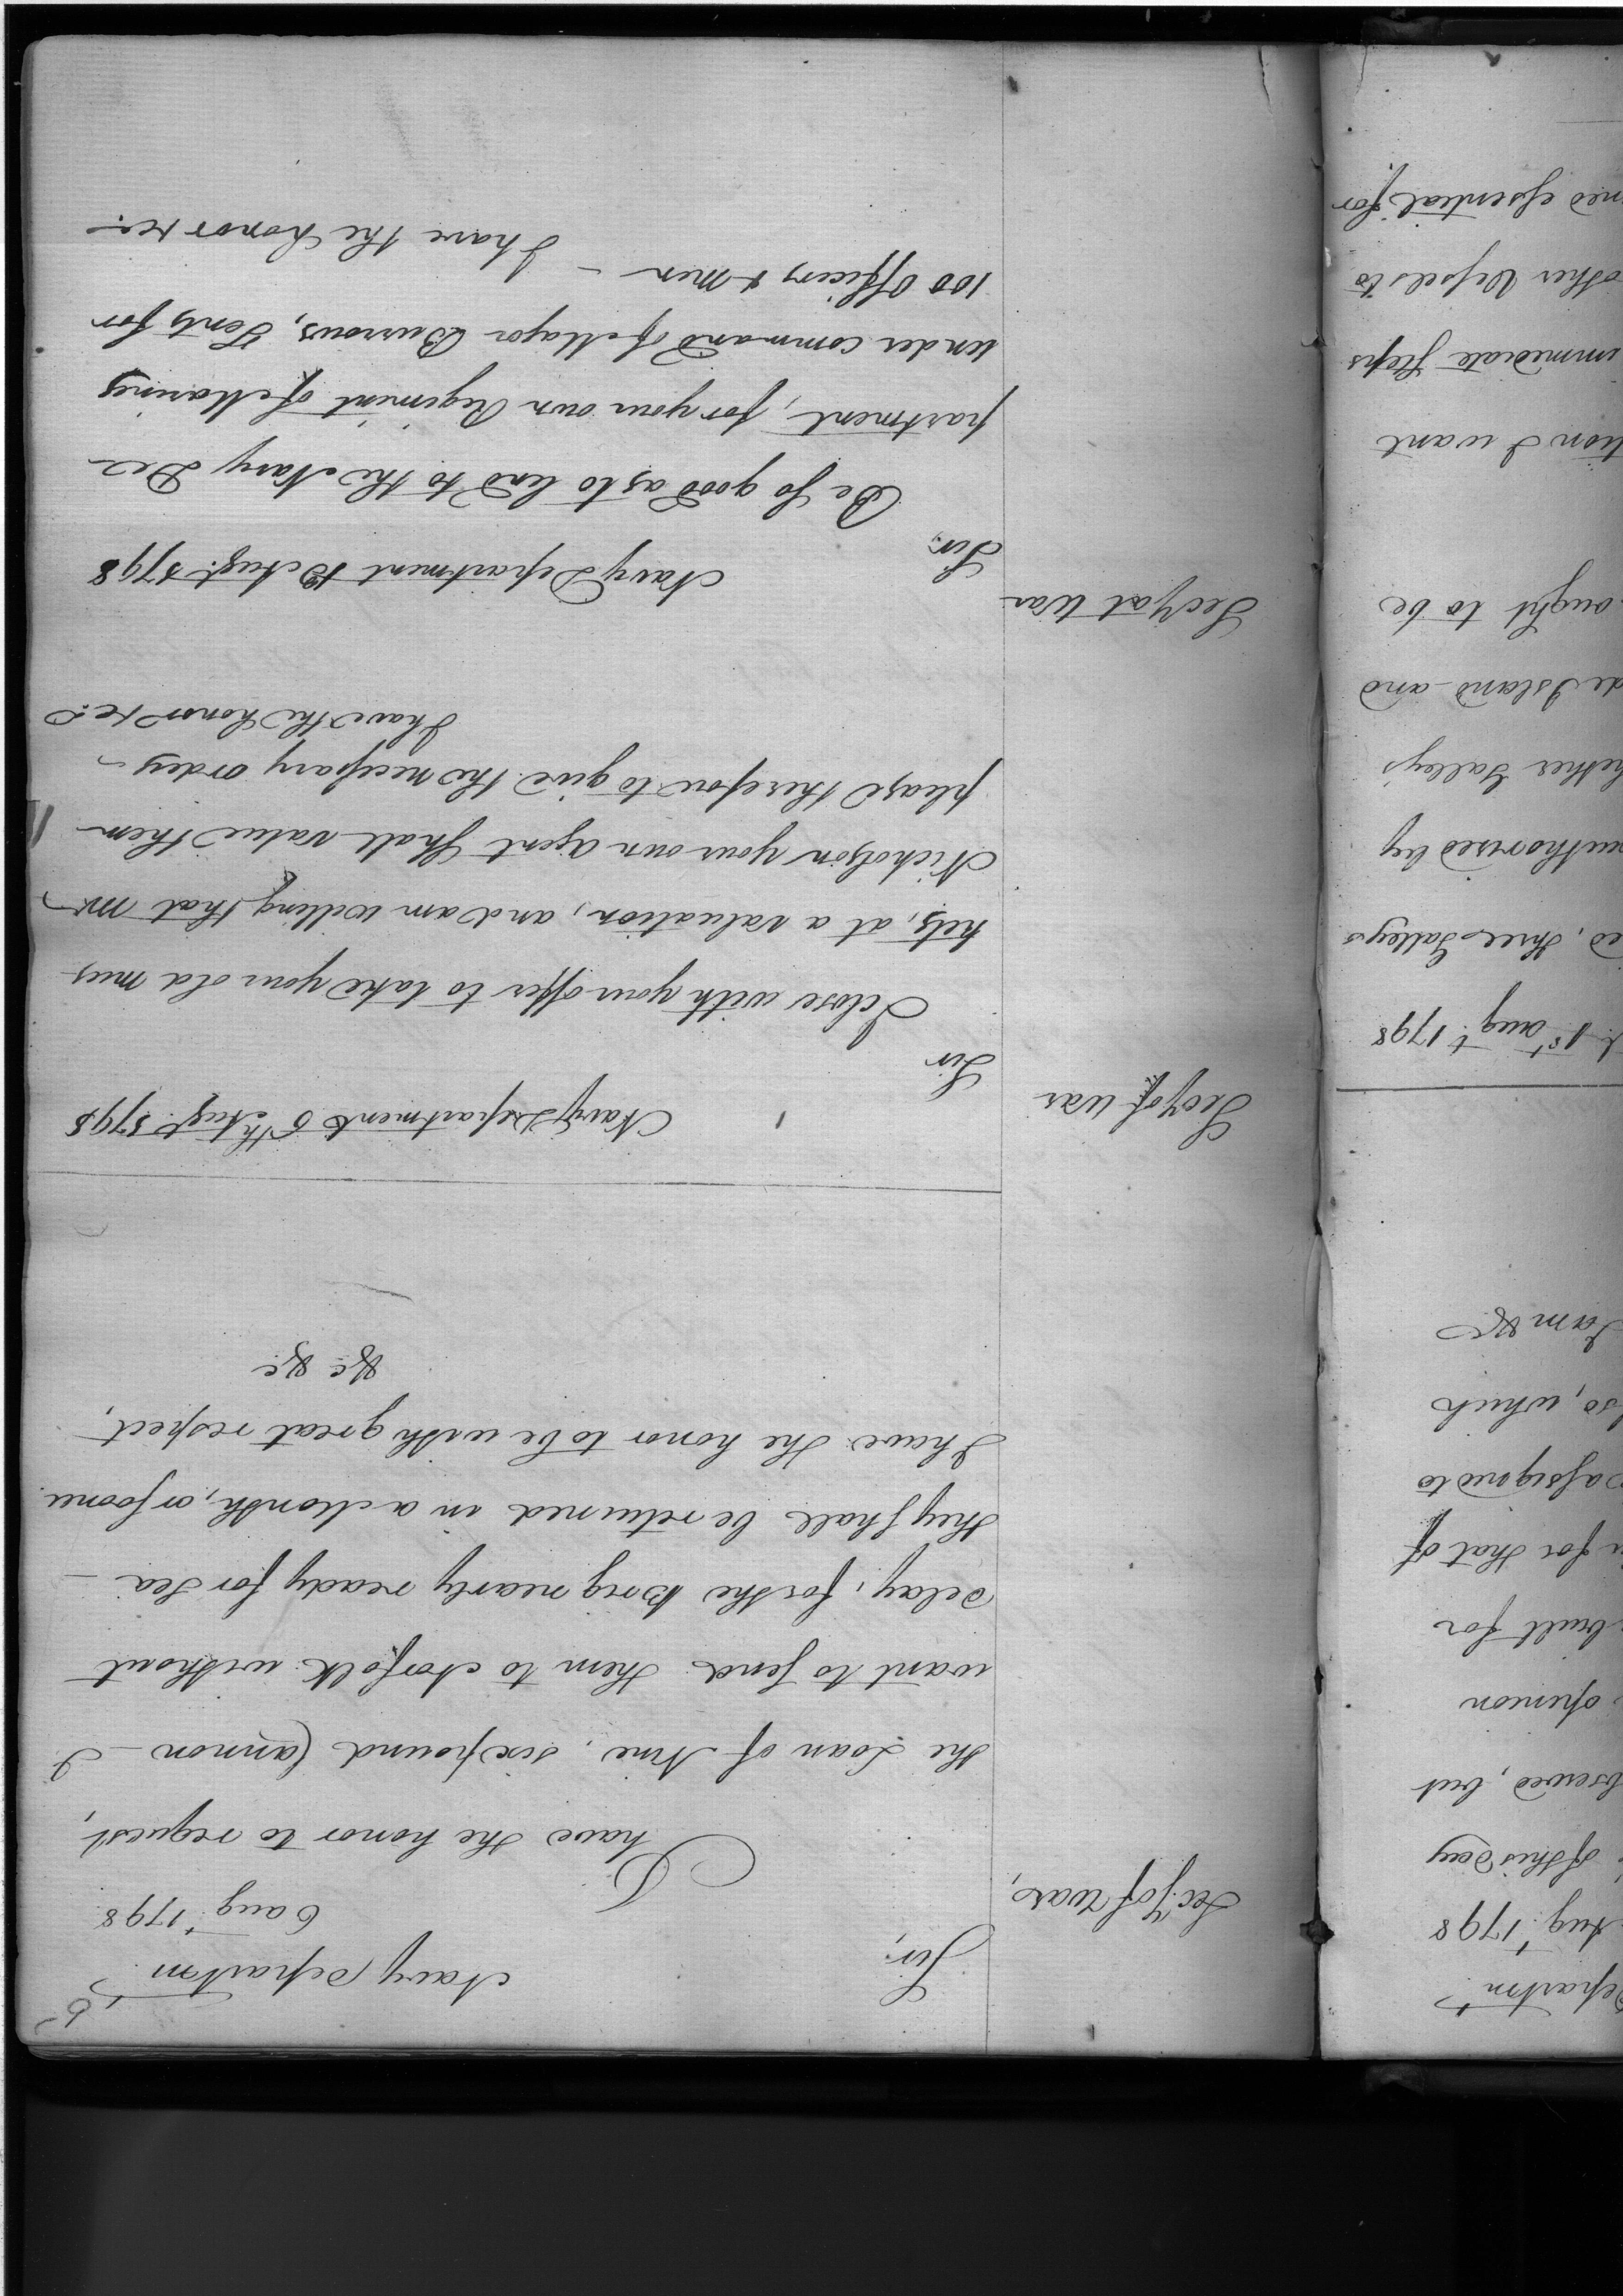 5
Navy Departm.t
6 aug.t 1798
Sec.y of War,
Sir,
I have the honor to request,
the Loan of Nine, six pound Cannon — I
want to send them to Norfolk without
delay, for the Brig nearly ready for Sea —
they shall be returned in a Month, or sooner
I have the honor to be with great respect,
&c &c
Navy Department 6th Aug.t 1798
Sec.y of War
Sir
I close with your offer to take your old mus
kets, at a valuation, and am willing that Mr
Nicholson your own agent shall value them
please therefore to give the necessary orders —
I have the honor &c.
Sec.y at War
Navy Department Aug.t 1798
Sir.
Be so good as to lend to the Navy De
partment, for your own Regiment of Marines
under command of Major Burrows, Tents for
100 Officers & Men —
I have the honor &c.
Departm.t
Aug.t 1798
of this day
bserved, but
opinion
built for
for that of
assigned to
so, which
I am &c
1st aug.t 1798
ed, three Galleys
authorised by
hether Galleys
de Island and
ought to be
tion I want
immediate steps
other Vessels to
ned essential for